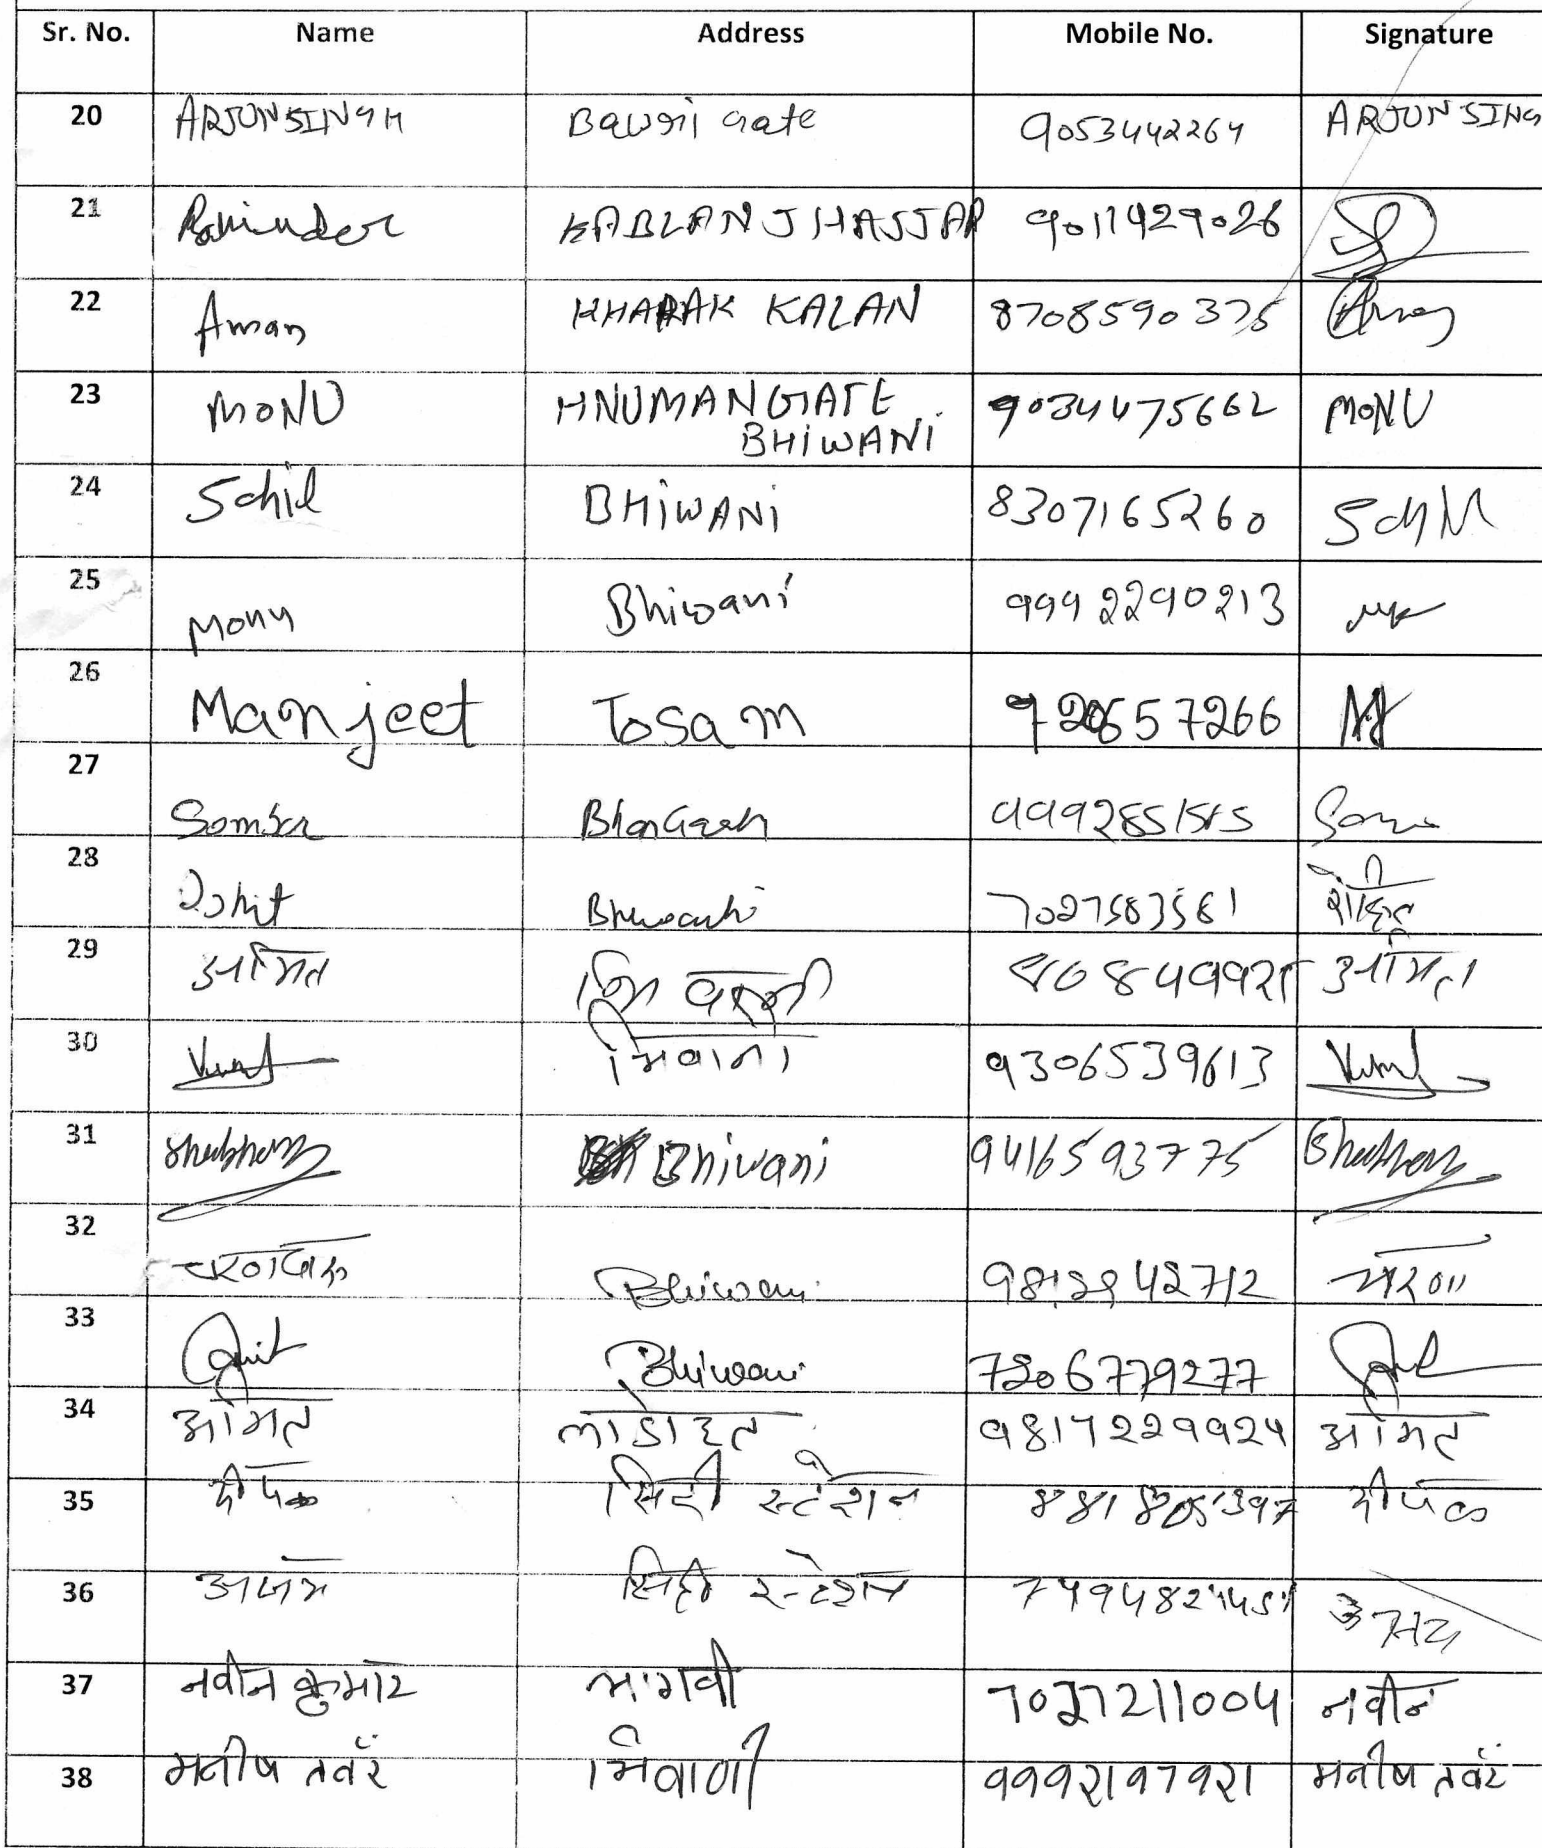 Sr. No. Name Address Mobile No. Signature
20 ARJUN SINGH Bawri Gate 9053442264 ARJUN SING
21 Parminder KABLAN JHAJJAR 9011429026
22 Aman KHARAK KALAN 8708590375 Aman
23 MONU HNUMAN GATE BHIWANI 9034475662 MONU
24 Sahil BHIWANI 8307165260 Sahil
25 Monu Bhiwani 9992290213
26 Manjeet Tosam
27 Sombir
28 Rohit Bhiwani 7027583561 रोहित
29 अमित अमित
30 भिवानी 9306539613
31 Shubham Bhiwani 9416593775 Shubham
32 Bhiwani चरण
33 Amit Bhiwani 7206779277
34 अमित 9817229924 अमित
35 दीपक सिटी स्टेशन दीपक
36 अजय सिटी स्टेशन अजय
37 नवीन कुमार मागवी 7027211004 नवीन
38 मनीष तवंर भिवाणी 9992197921 मनीष तवंर